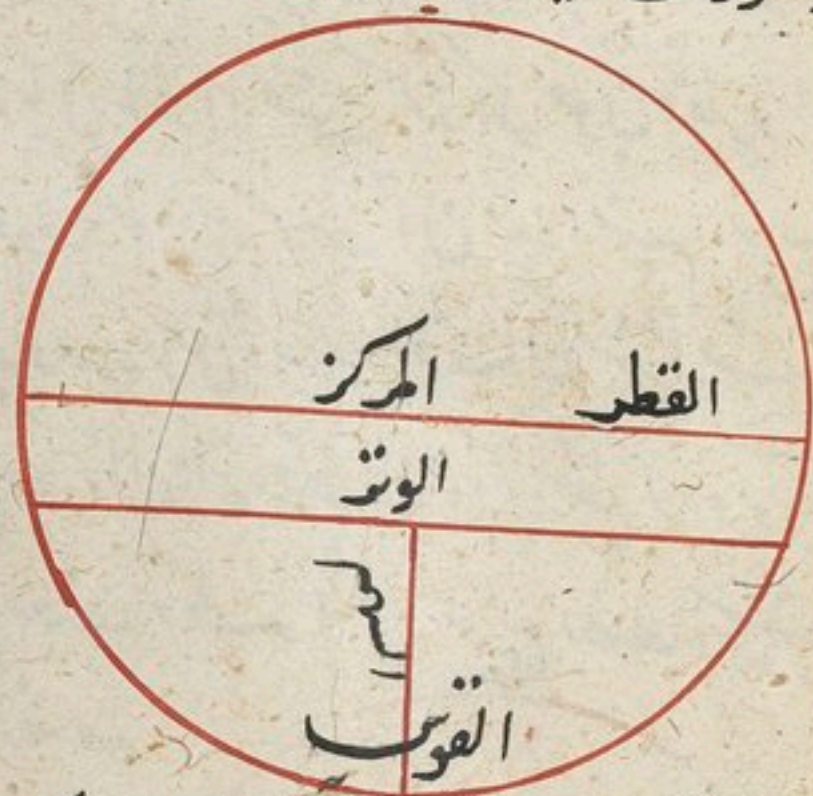 القطر
المركز
الوتر
السهم
القوس